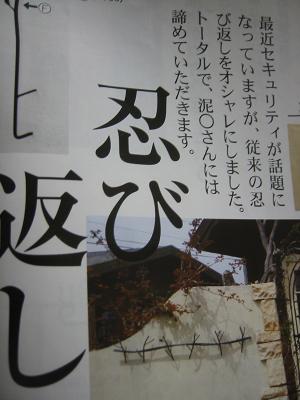 最近セキュリティが話題に
なっていますが、従来の忍
び返しをオシャレにしました。
トータルで、泥〇さんには
諦めていただきます。
忍び
返し
F